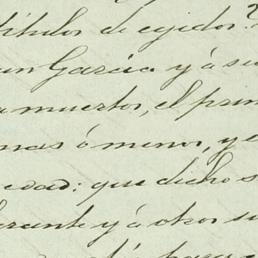 títulos de egidos.
un García y á su
muertos, el prim
mas ó menos, y e
edad: que dicho s
erante y á otros su